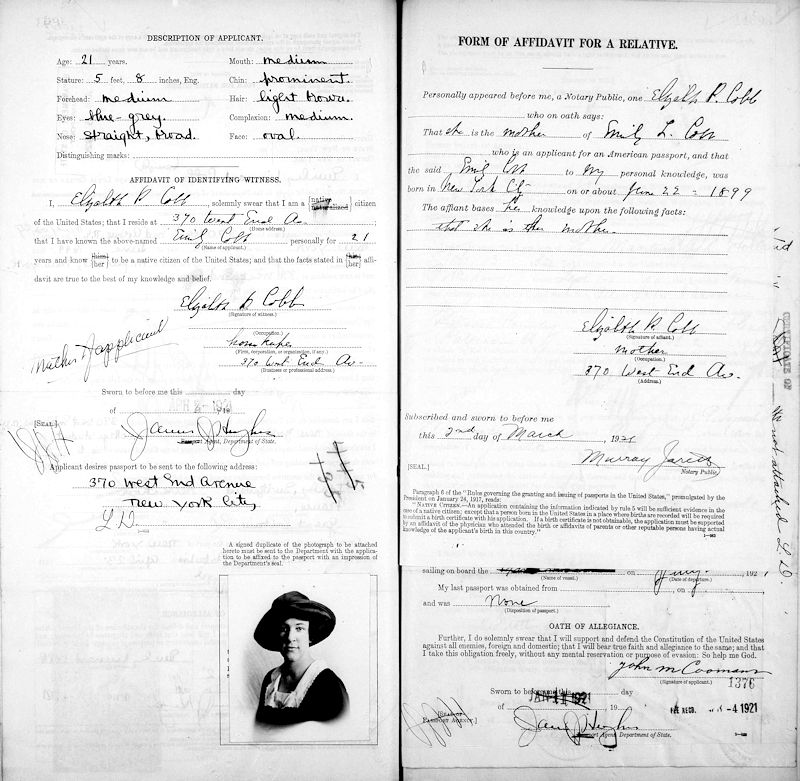 DESCRIPTION OF APPLICANT.
Age: 21 years. Mouth: medium
Stature: 5 feet, 8 inches, Eng. Chin: prominent.
Forehead: medium Hair: light brown.
Eyes: blue-grey. Complexion: medium.
Nose: straight, broad. Face: oval.
Distinguishing marks:
AFFIDAVIT OF IDENTIFYING WITNESS.
I, Elizabeth P. Cobb, solemnly swear that I am a {native naturalized} citizen
of the United States; that I reside at 370 West End Av.
(Home address.)
that I have known the above-named Emily Cobb personally for 21
(Name of applicant.)
years and know {him her} to be a native citizen of the United States; and that the facts stated in {his her} affi-
davit are true to the best of my knowledge and belief.
Elizabeth P. Cobb
(Signature of witness.)
(Occupation.)
housekeeper
(Firm, corporation, or organization, if any.)
370 West End Av.
(Business or professional address.)
Mother of applicant
Sworn to before me this day
of 19
[SEAL.] James J Hughes
Passport Agent, Department of State.
Applicant desires passport to be sent to the following address:
370 West End Avenue
New York City,
L D.
A signed duplicate of the photograph to be attached
hereto must be sent to the Department with the applica-
tion to be affixed to the passport with an impression of
the Department's seal.
FORM OF AFFIDAVIT FOR A RELATIVE.
Personally appeared before me, a Notary Public, one Elizabeth P. Cobb
who on oath says:
That she is the mother of Emily L. Cobb
who is an applicant for an American passport, and that
the said Emily Cobb to my personal knowledge, was
born in New York City on or about June 22 - 1899
The affiant bases her knowledge upon the following facts:
that she is her mother.
Elizabeth P. Cobb
(Signature of affiant.)
mother
(Occupation.)
370 West End Av.
(Address.)
Subscribed and sworn to before me
this 2nd day of March, 1921
[SEAL.] Murray
Notary Public.
Paragraph 6 of the "Rules governing the granting and issuing of passports in the United States," promulgated by the
President on January 24, 1917, reads:
"NATIVE CITIZEN.—An application containing the information indicated by rule 5 will be sufficient evidence in
the case of a native citizen; except that a person born in the United States in a place where births are recorded will be required
to submit a birth certificate with his application. If a birth certificate is not obtainable, the application must be supported
by an affidavit of the physician who attended the birth or affidavits of parents or other reputable persons having actual
knowledge of the applicant's birth in this country."
sailing on board the on , 192
(Name of vessel.) (Date of departure.)
My last passport was obtained from , on ,
and was None
(Disposition of passport.)
OATH OF ALLEGIANCE.
Further, I do solemnly swear that I will support and defend the Constitution of the United States
against all enemies, foreign and domestic; that I will bear true faith and allegiance to the same; and that
I take this obligation freely, without any mental reservation or purpose of evasion: So help me God.
John M Coomans
(Signature of applicant.)
1376
Sworn to before me this day
of JAN 11 1921
-4 1921
[SEAL OF
PASSPORT AGENCY.] James J Hughes
Passport Agent, Department of State.
not attached L. D.